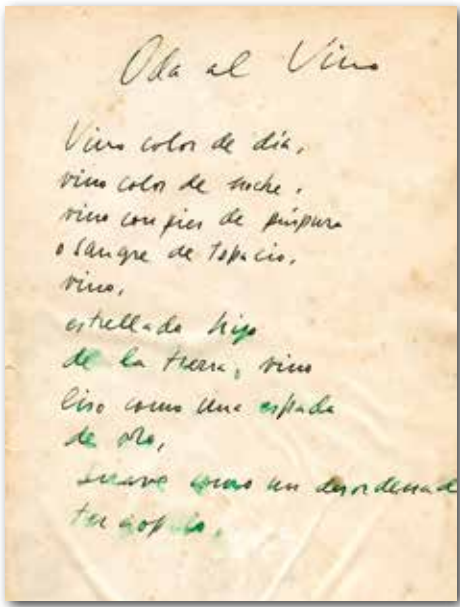 Oda al Vino
Vino color de día,
vino color de noche,
vino con pies de púrpura
o sangre de topacio,
vino,
estrellado hijo
de la tierra, vino
liso como una espada
de oro,
suave como un desordenad
terciopelo,